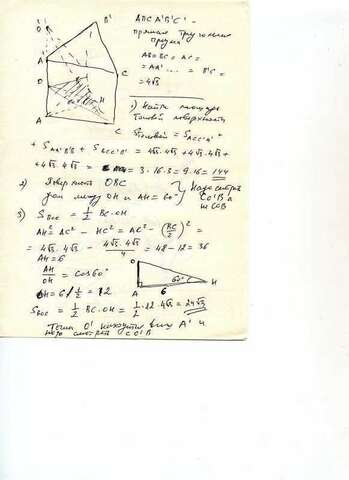 O'
B'
A'
C
O
H
A
C
ABCA'B'C' -
прямая треугольная
призма
AB = BC = AC =
= AA' ... = B'C =
= 4√3
1) Найти площадь
боковой поверхности
Sбоковой = SACC'A' +
+ SAA'B'B + SBCC'B' = 4√3·4√3 + 4√3·4√3 +
+ 4√3·4√3 = 3·16·3 = 9·16 = 144
2) Поверхность OBC
угол между OH и AH = 60°
Надо смотреть
CC'B'B
и COB
3) SBOC = 1/2 BC·OH
AH² = AC² - HC² = AC² - (BC/2)² =
= 4√3·4√3 - 4√3·4√3/4 = 48 - 12 = 36
AH = 6
AH/OH = cos 60°
OH = 6/½ = 12
O
60°
A
6
H
SBOC = 1/2 BC·OH = 1/2·12·4√3 = 24√3
Точка O' находится A' и
надо смотреть CO'B